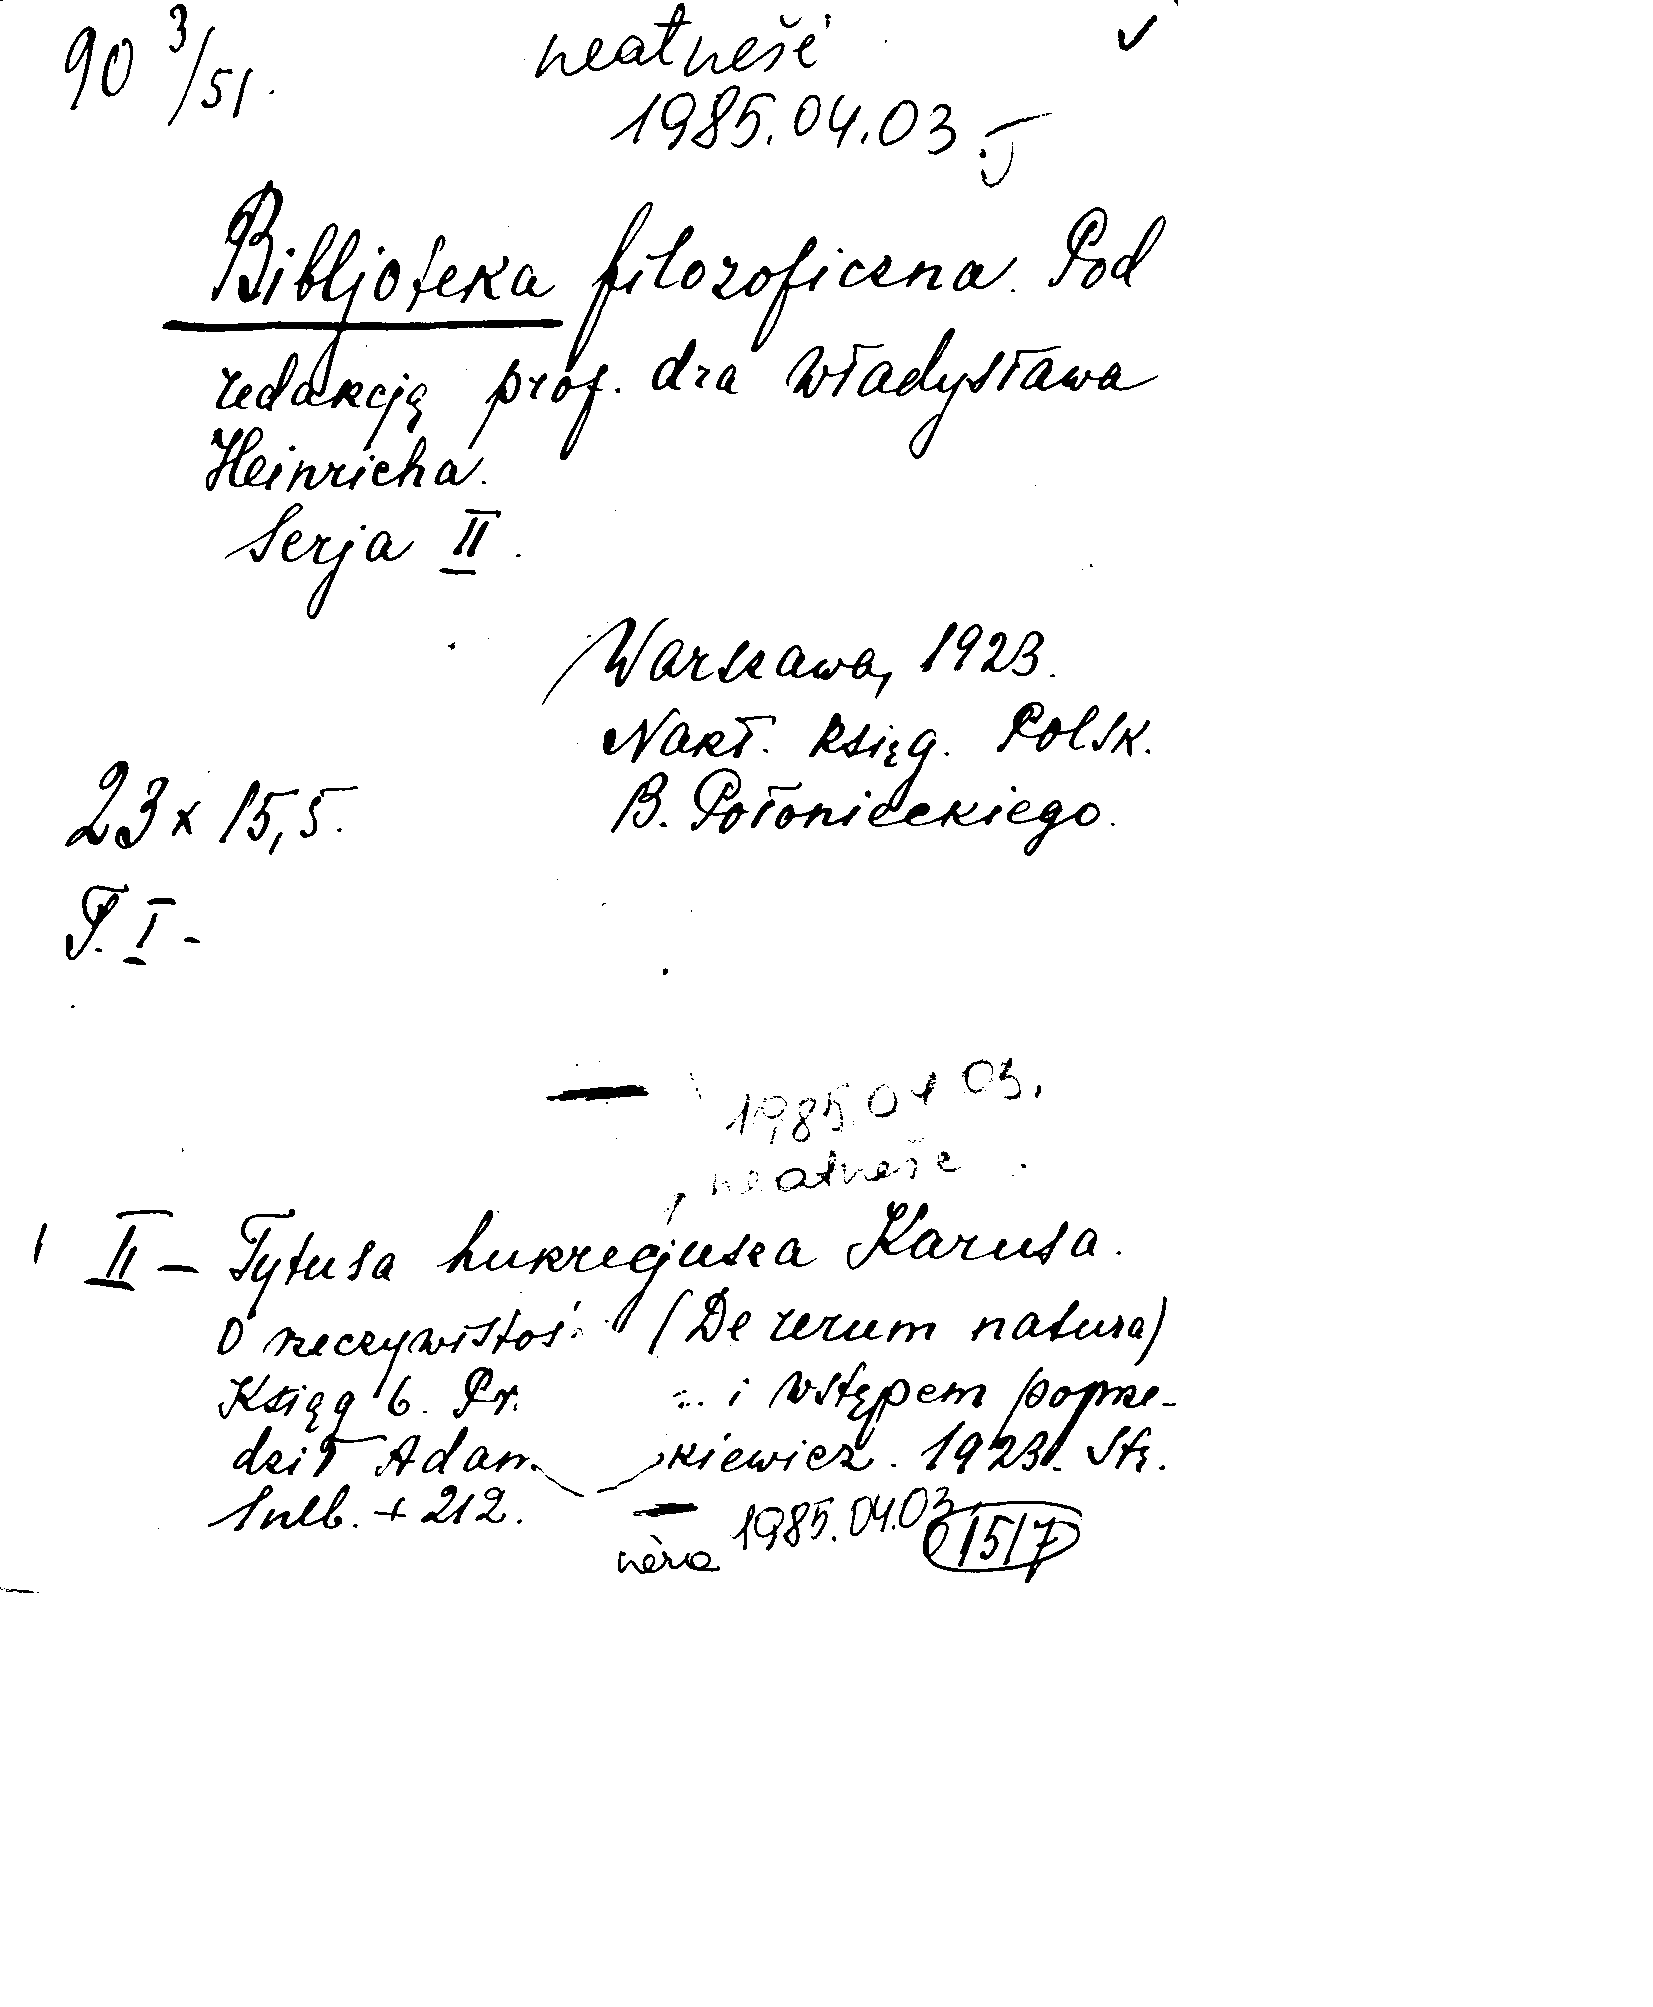 90 3/51.
neatnešė ✓
1985.04.03.
Bibljoteka filozoficzna. Pod
redakcją prof. dra Władysława
Heinricha.
Serja II.
Warszawa, 1923.
Nakł. Księg. Polsk.
23 x 15,5. B. Połonieckiego.
T. I -
1985 04 03.
neatnešė
II - Tytusa Lukrecjusza Karusa.
O rzeczywistoś (De rerum natura)
Ksiąg 6. Pr. i wstępem poprze-
dził Adam kiewicz. 1923. Str.
1nlb. + 212.
nėra 1985.04.03 1517